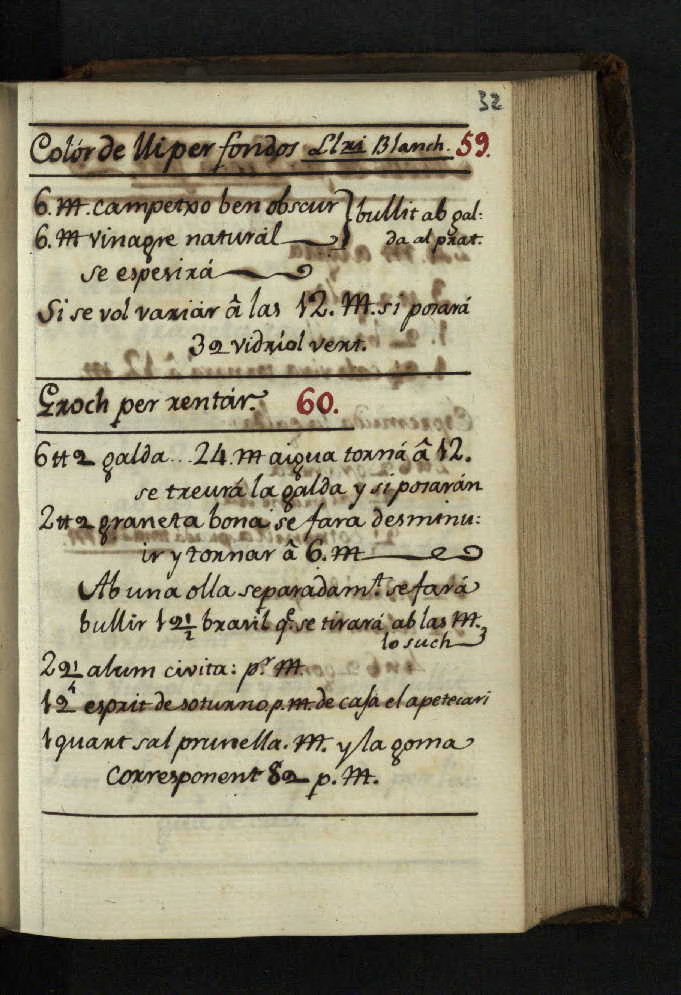 32
Colór de lli per fondos Llxi Blanch. 59.
6. m. campetxo ben obscur
6. m vinagre naturál
bullit ab gal:
da al prat.
se espesirá
Si se vol variar â las 12. m. si posará
3 ꝛ vidriol vert.
Groch per rentár. 60.
6 tt ꝛ galda... 24. m aigua torná â 12.
se treurá la galda y si posarán
2 tt ꝛ graneta bona se fara desminu:
ir y tornar â 6. m
Ab una olla separadamt. se fará
bullir 1 ꝛ 1/2 brasil qe. se tirará ab las m.
lo such
2 ꝛ 1/4 alum civita: pr. m
1 ꝛ esprit de soturno p. m. de casa el apetecari
1 quart sal prunella. m. y la goma
Corresponent 8 ꝛ p. m.